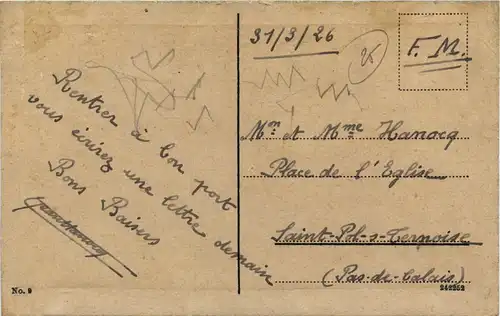 31/3/26
25
F.M.
Rentrer à bon port
vous écrirez une lettre demain
Bons Baisers
Mr et Mme Hanocq
Place de l'Eglise
Saint-Pol-s-Ternoise
(Pas-de-Calais)
No. 9
246252